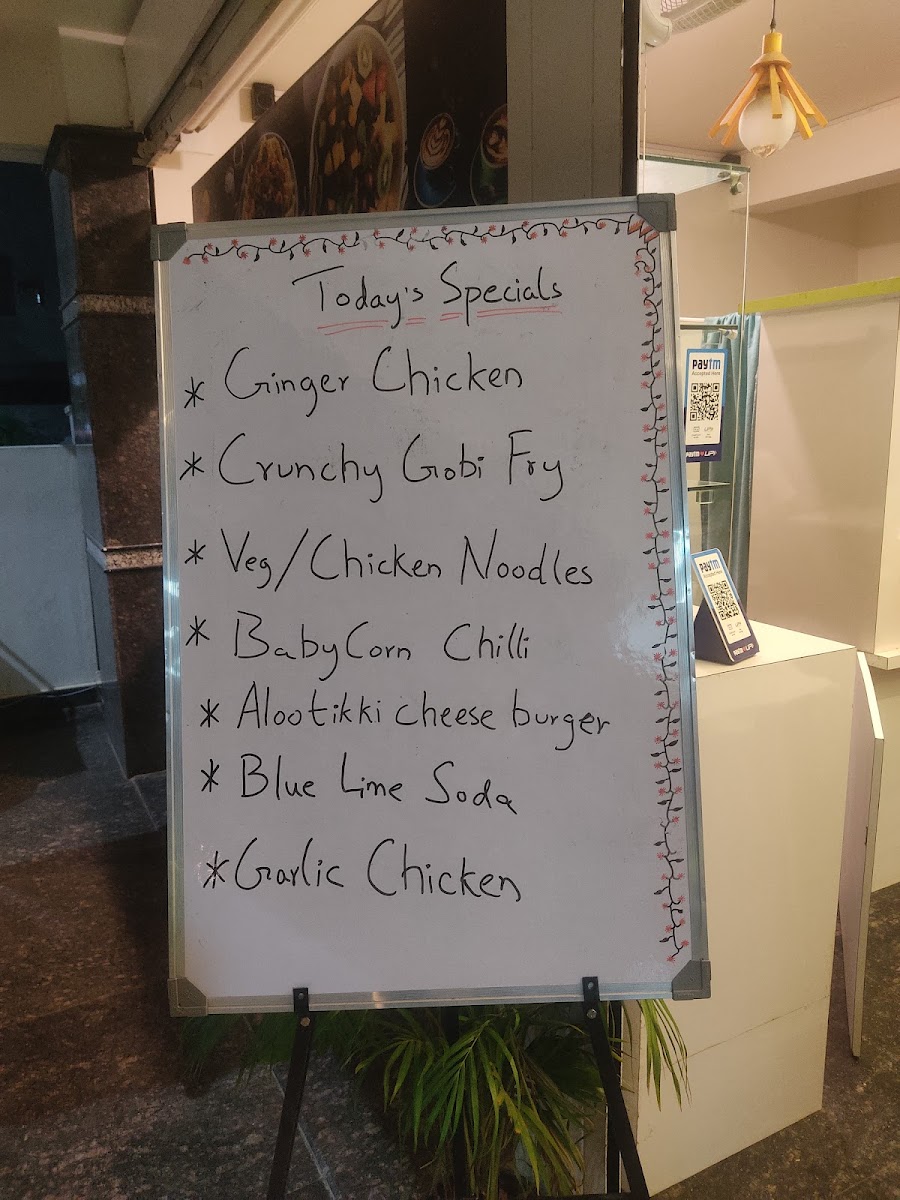 Today's Specials
* Ginger Chicken
* Crunchy Gobi Fry
* Veg/Chicken Noodles
* BabyCorn Chilli
* Alootikki cheese burger
* Blue Lime Soda
* Garlic Chicken
paytm
Accepted Here
paytm